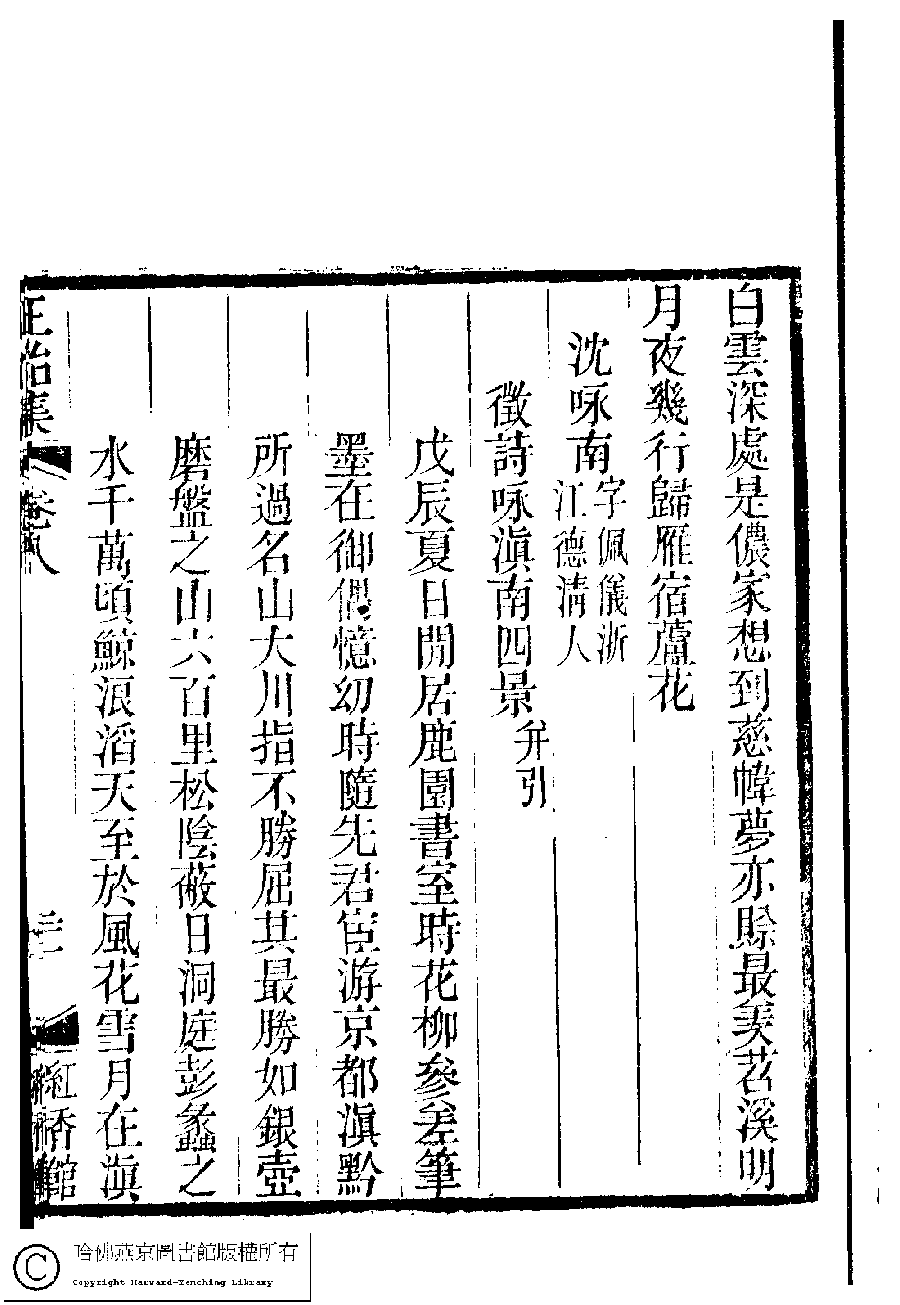 白雲深處是儂家想到慈幃夢亦賖最羡苕溪明
月夜幾行歸雁宿蘆花
沈咏南
字佩儀浙
江德淸人
徵詩咏滇南四景
弁引
戊辰夏日閒居鹿園書室時花柳參差筆
墨在御偶憶幼時隨先君宦游京都滇黔
所過名山大川指不勝屈其最勝如銀壺
磨盤之山六百里松陰蔽日洞庭彭蠡之
水千萬頃鯨浪滔天至於風花雪月在滇
正始集
卷八
三
紅香館
哈佛燕京圖書館版權所有
Copyright Harvard-Yenching Library